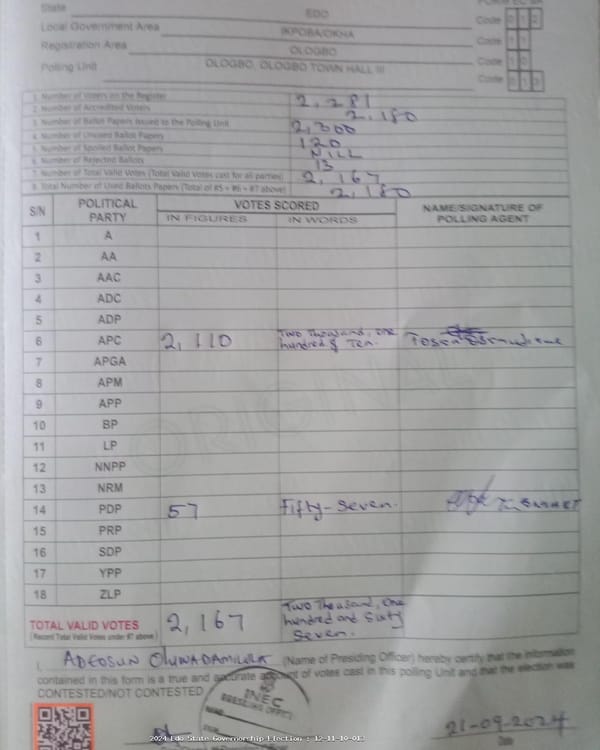 FORM EC 8A
State EDO Code 0 1 2
Local Government Area IKPOBA/OKHA Code 1 1
Registration Area OLOGBO Code 1 0
Polling Unit OLOGBO, OLOGBO TOWN HALL III Code 0 1 3
1. Number of Voters on the Register 2,281
2. Number of Accredited Voters 2,180
3. Number of Ballot Papers Issued to the Polling Unit 2,300
4. Number of Unused Ballot Papers 120
5. Number of Spoiled Ballot Papers NILL
6. Number of Rejected Ballots 13
7. Number of Total Valid Votes (Total Valid Votes cast for all parties) 2,167
8. Total Number of Used Ballots Papers (Total of #5 + #6 + #7 above) 2,180
S/N POLITICAL PARTY VOTES SCORED NAME/SIGNATURE OF POLLING AGENT
IN FIGURES IN WORDS
1 A
2 AA
3 AAC
4 ADC
5 ADP
6 APC 2,110 Two Thousand, one hundred & Ten.
7 APGA
8 APM
9 APP
10 BP
11 LP
12 NNPP
13 NRM
14 PDP 57 Fifty-Seven.
15 PRP
16 SDP
17 YPP
18 ZLP
TOTAL VALID VOTES 2,167 Two Thousand, One hundred and Sixty Seven.
(Record Total Valid Votes under #7 above)
I, ADEOSUN OLUWADAMILOLA (Name of Presiding Officer) hereby certify that the information
contained in this form is a true and accurate account of votes cast in this polling Unit and that the election was
CONTESTED/NOT CONTESTED
INEC
PRESIDING OFFICER
21-09-2024
Date
2024 Edo State Governorship Election : 12-11-10-013
ORIGINAL